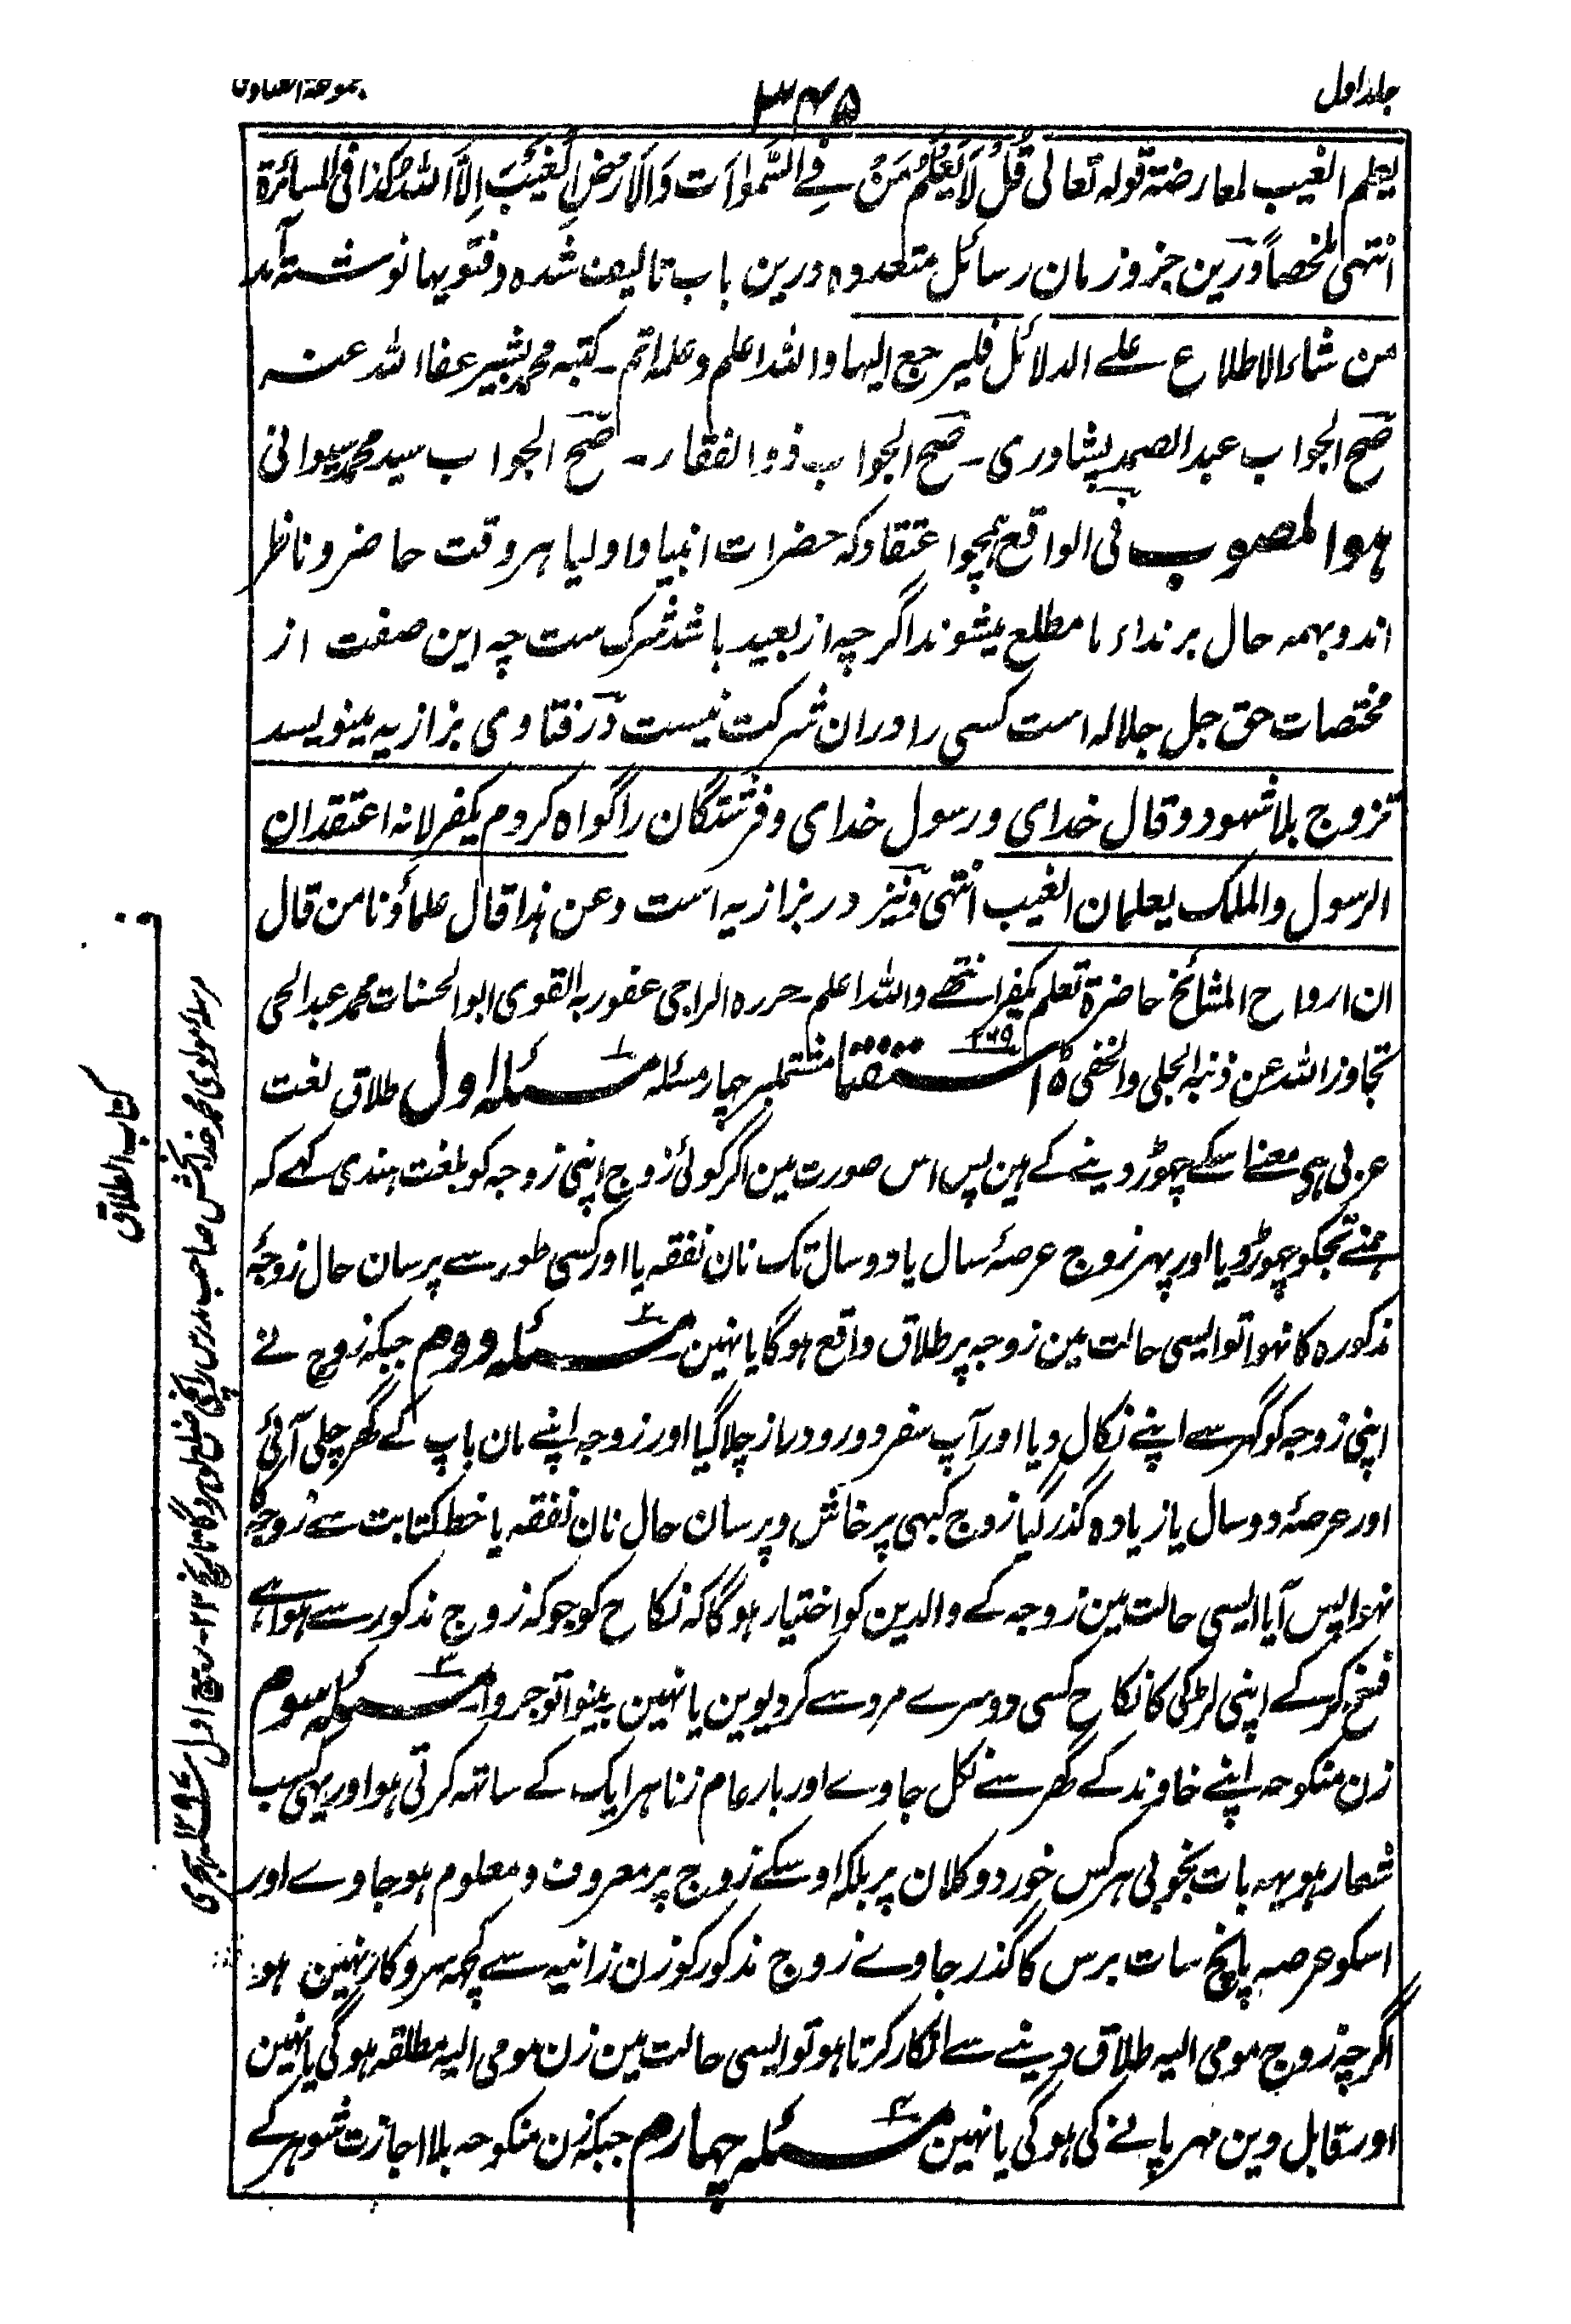 جلد اول
۳۴۵
مجموعۃ الفتاوی
يعلم الغيب لمعارضة قوله تعالى قُلْ لَا يَعْلَمُ مَنْ فِي السَّمٰوٰاتِ وَالْاَرْضِ الْغَيْبَ اِلَّا اللهُ كذا في المسائرة
انتهى ملخصاً ودرین جزو زمان رسائل متعدده درین باب تالیف شده و فتویها نوشته آمد
من شاء الاطلاع علے الدلائل فليرجع اليها والله اعلم وعلمه اتم۔ كتبه محمد بشير عفا الله عنه
صح الجواب عبد الصمد پشاوری۔ صح الجواب ذو الفقار۔ صح الجواب سید محمد سہوانی
ہو المصوب فی الواقع ہمچو اعتقاد که حضرات انبیا و اولیا هر وقت حاضر و ناظر
اند و بہمہ حال بر نداء ما مطلع میشوند اگرچہ از بعید باشد شرک ست چه این صفت از
مختصات حق جل جلاله است کسی را دران شرکت نیست در فتاوی بزازیہ مینویسد
تزوج بلا شهود و قال خدای و رسول خدای و فرشتگان را گواه کردم یکفر لانه اعتقد ان
الرسول والملک یعلمان الغیب انتہی و نیز در بزازیہ است وعن ہذا قال علماؤنا من قال
ان ارواح المشائخ حاضرة تعلم یکفر انتهے والله اعلم۔ حرره الراجی عفو ربہ القوی ابو الحسنات محمد عبد الحی
تجاوز الله عن ذنبہ الجلی والخفی ۱۵ استفتا مشتملبر چار مسئلہ مسئلہ اول طلاق لغت
عربی ہی معنے اسکے چھوڑ دینے کے ہین پس اس صورت مین اگر کوئی زوج اپنی زوجہ کو بلغت ہندی کہے کہ
ہمنے تجکو چھوڑ دیا اور پھر زوج عرصۂ سال یا دو سال تک نان نفقہ یا اور کسی طور سے پرسان حال زوجۂ
مذکورہ کا نہوا تو ایسی حالت مین زوجہ پر طلاق واقع ہوگا یا نہین۔ مسئلہ دوم جبکہ زوج نے
اپنی زوجہ کو گھر سے اپنے نکال دیا اور آپ سفر دور و دراز چلا گیا اور زوجہ اپنے مان باپ کے گھر چلی آئی
اور عرصۂ دو سال یا زیادہ گذر گیا زوج کبہی پرخاش و پرسان حال نان نفقہ یا خط کتابت سے زوجہ کا
نہوا پس آیا ایسی حالت مین زوجہ کے والدین کو اختیار ہوگا کہ نکاح کو جو کہ زوج مذکور سے ہوا ہے
فسخ کر کے اپنی لڑکی کا نکاح کسی دوسرے مرد سے کر دیوین یا نہین بینوا توجروا۔ مسئلہ سوم
زن منکوحہ اپنے خاوند کے گھر سے نکل جاوے اور بار عام زنا ہر ایک کے ساتھ کرتی ہو اور یہی کسب
شعار ہو یہہ بات بخوبی ہر کس خورد و کلان پر بلکہ اوسکے زوج پر معروف و معلوم ہو جاوے اور
اسکو عرصہ پانچ سات برس کا گذر جاوے زوج مذکور کو زن زانیہ سے کچھ سروکار نہین ہو
اگرچہ زوج مومی الیہ طلاق دینے سے انکار کرتا ہو تو ایسی حالت مین زن مومی الیہ مطلقہ ہوگی یا نہین
اور قابل دین مہر پانے کی ہوگی یا نہین مسئلہ چہارم جبکہ زن منکوحہ بلا اجازت شوہر کے
کتاب الطلاق
مرسلہ مولوی محمد خدا بخش صاحب مدرس ۲۳۔ ربیع اول ہجری